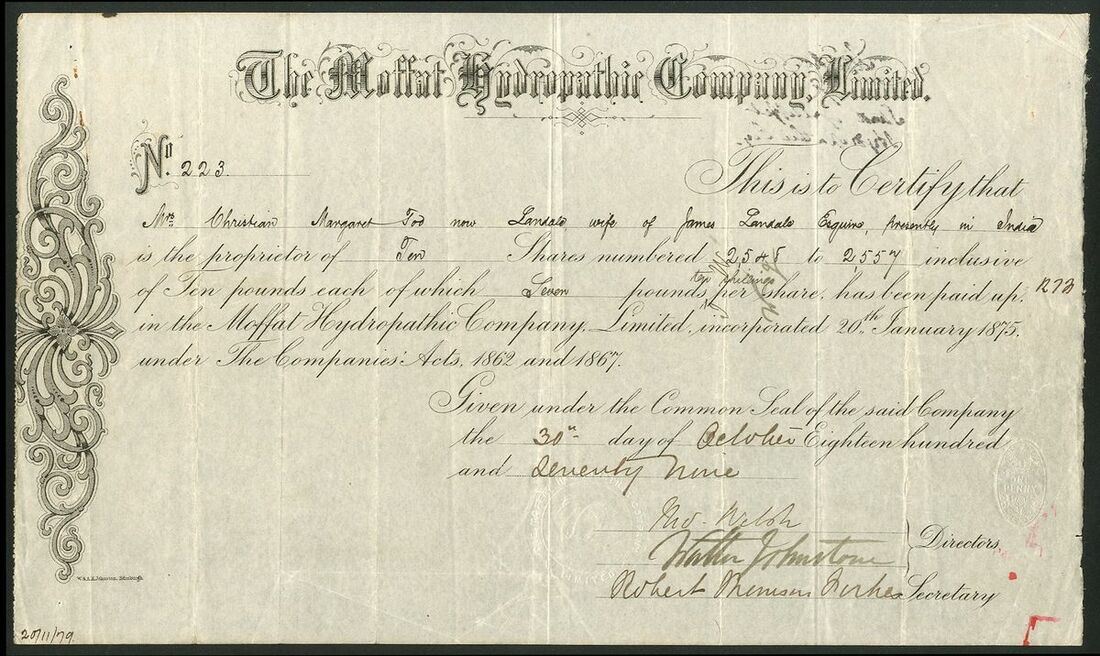 The Moffat Hydropathic Company, Limited.
No. 223.
This is to Certify that
Mrs Christian Margaret Tod now Landale wife of James Landale Esquire, presently in India
is the proprietor of Ten Shares numbered 2548 to 2557 inclusive
ten shillings
of Ten pounds each of which Seven pounds per share, has been paid up, 1273
in the Moffat Hydropathic Company, Limited, incorporated 20th January 1875,
under The Companies' Acts, 1862 and 1867.
Given under the Common Seal of the said Company
the 30th day of October Eighteen hundred
and Seventy Nine
Welsh
Walter Johnstone
Directors,
Robert Forbes Secretary
W. & A.K. Johnston, Edinburgh.
20/11/79